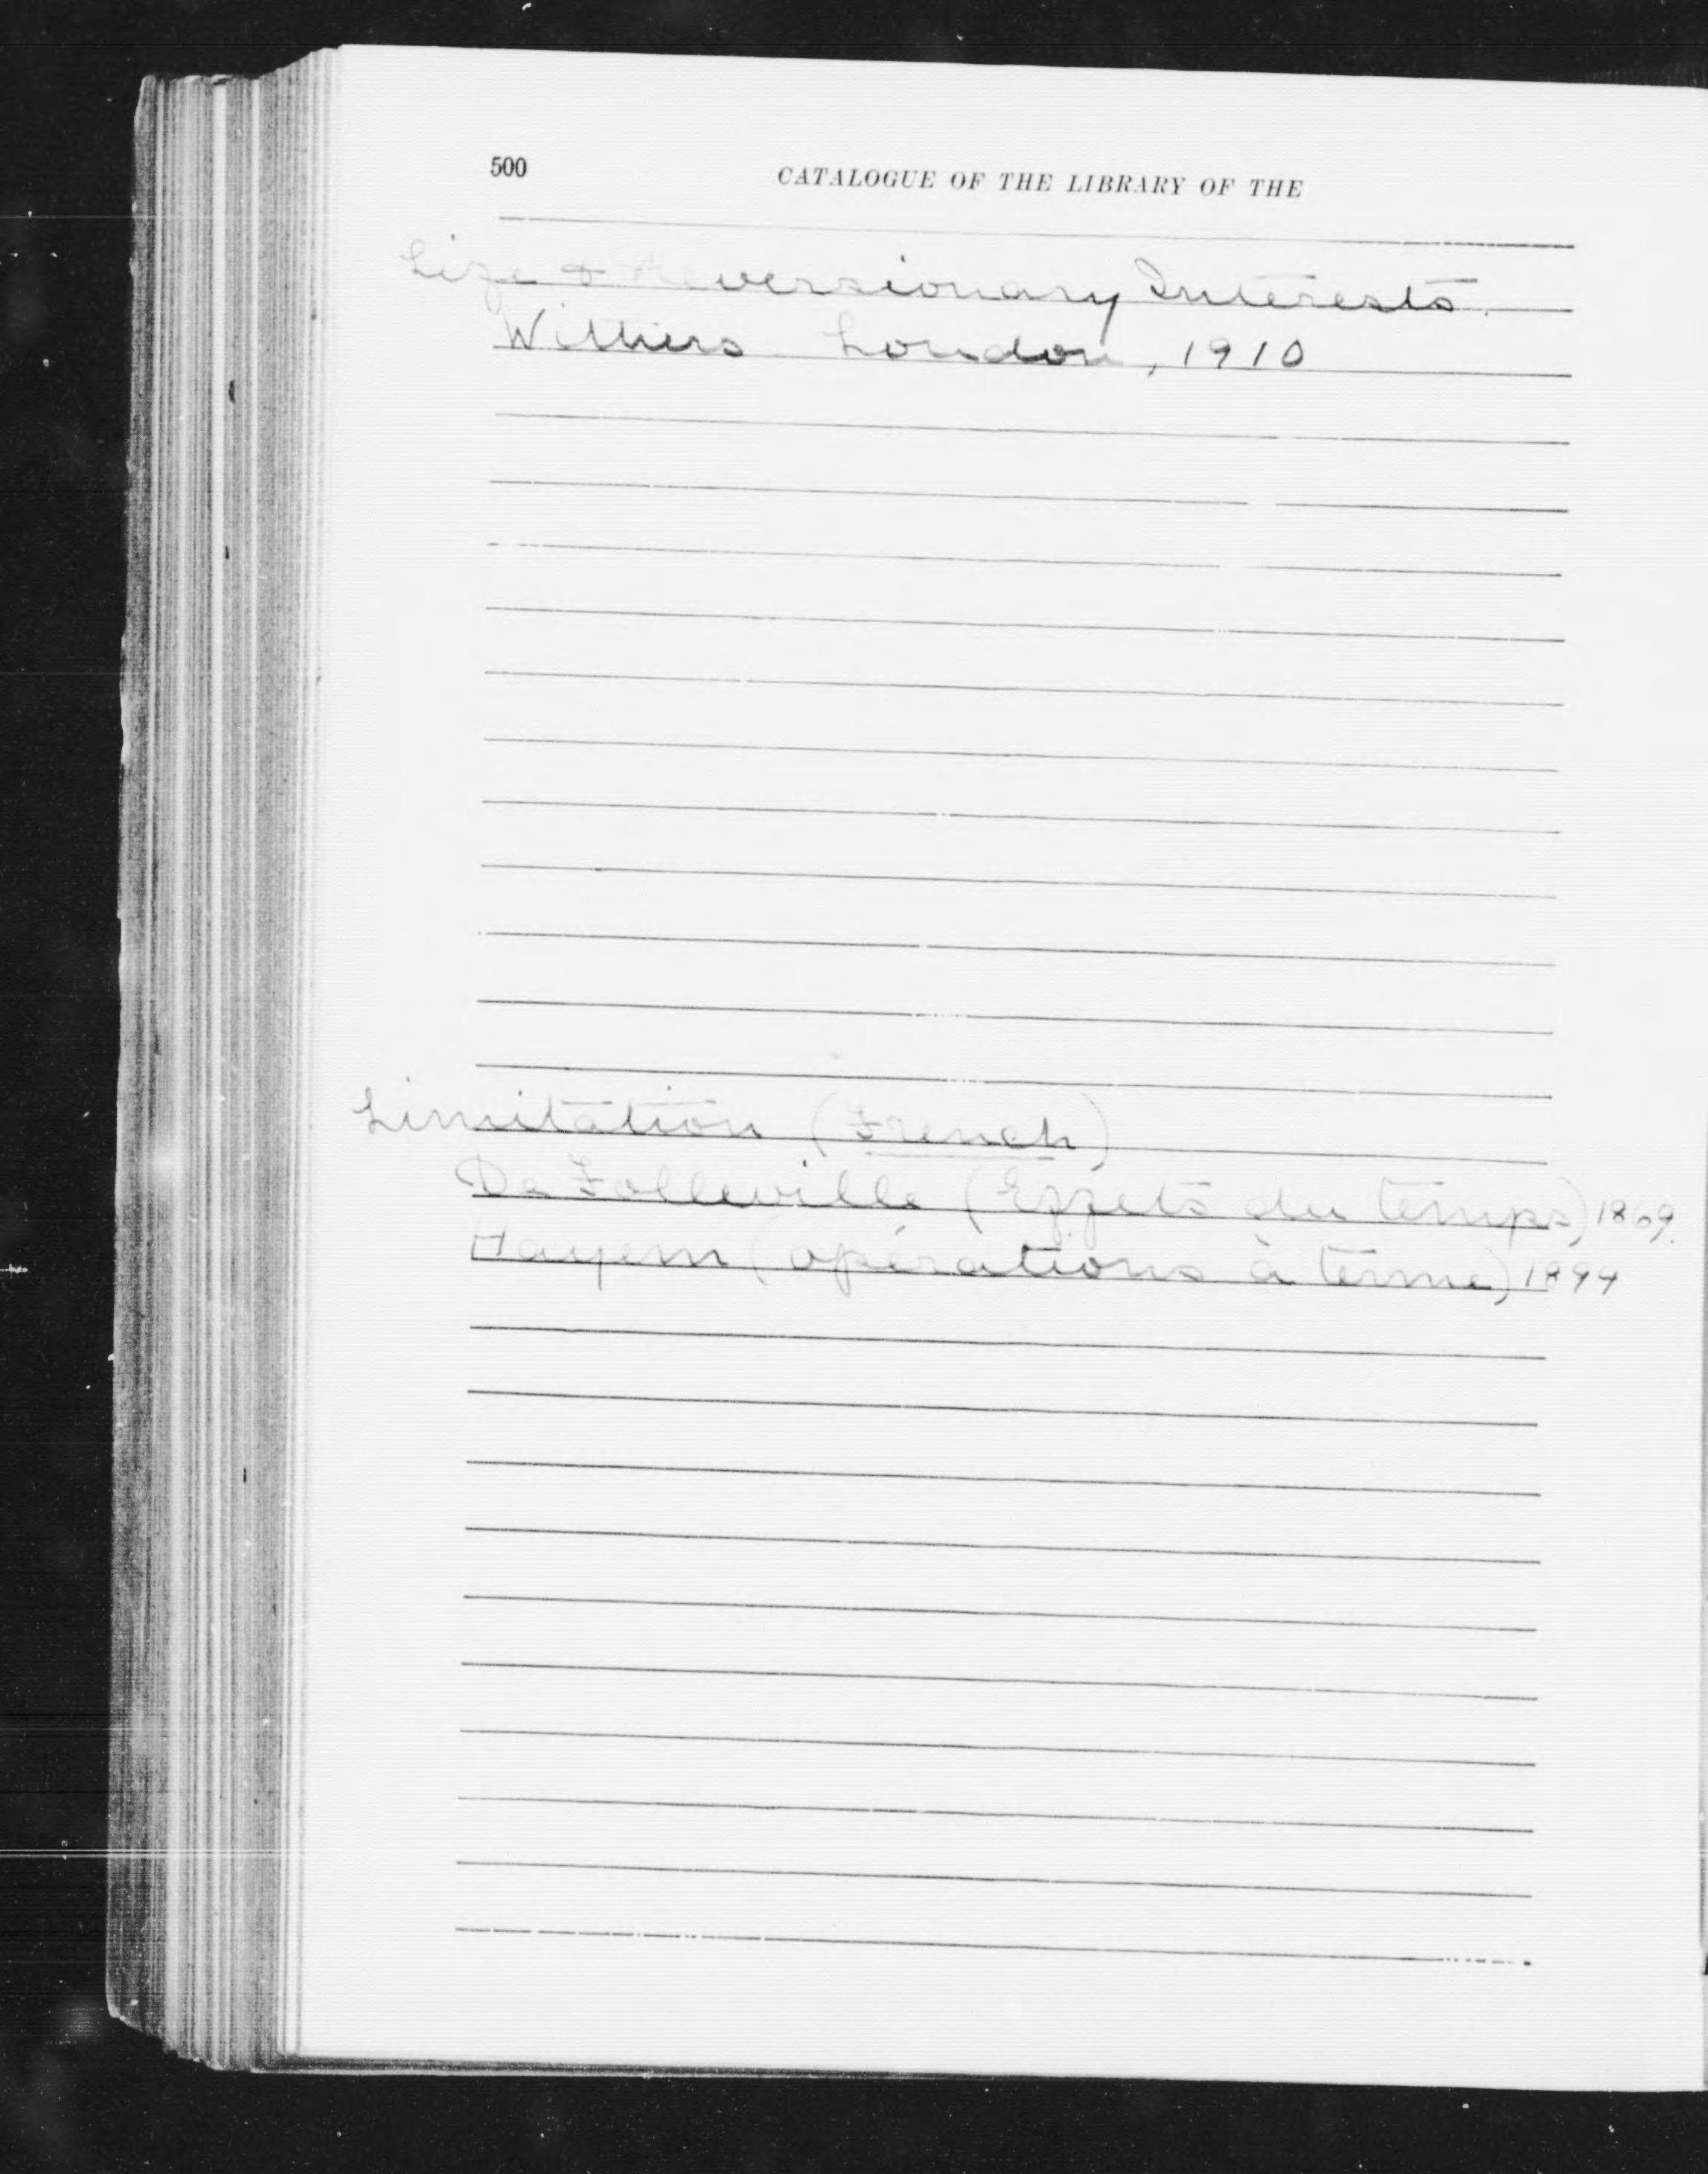 500
CATALOGUE OF THE LIBRARY OF THE
Life & Reversionary Interests.
Withers London, 1910
Limitation (French)
De Folleville (Effets du temps) 1869.
Hayem (opérations à terme) 1894